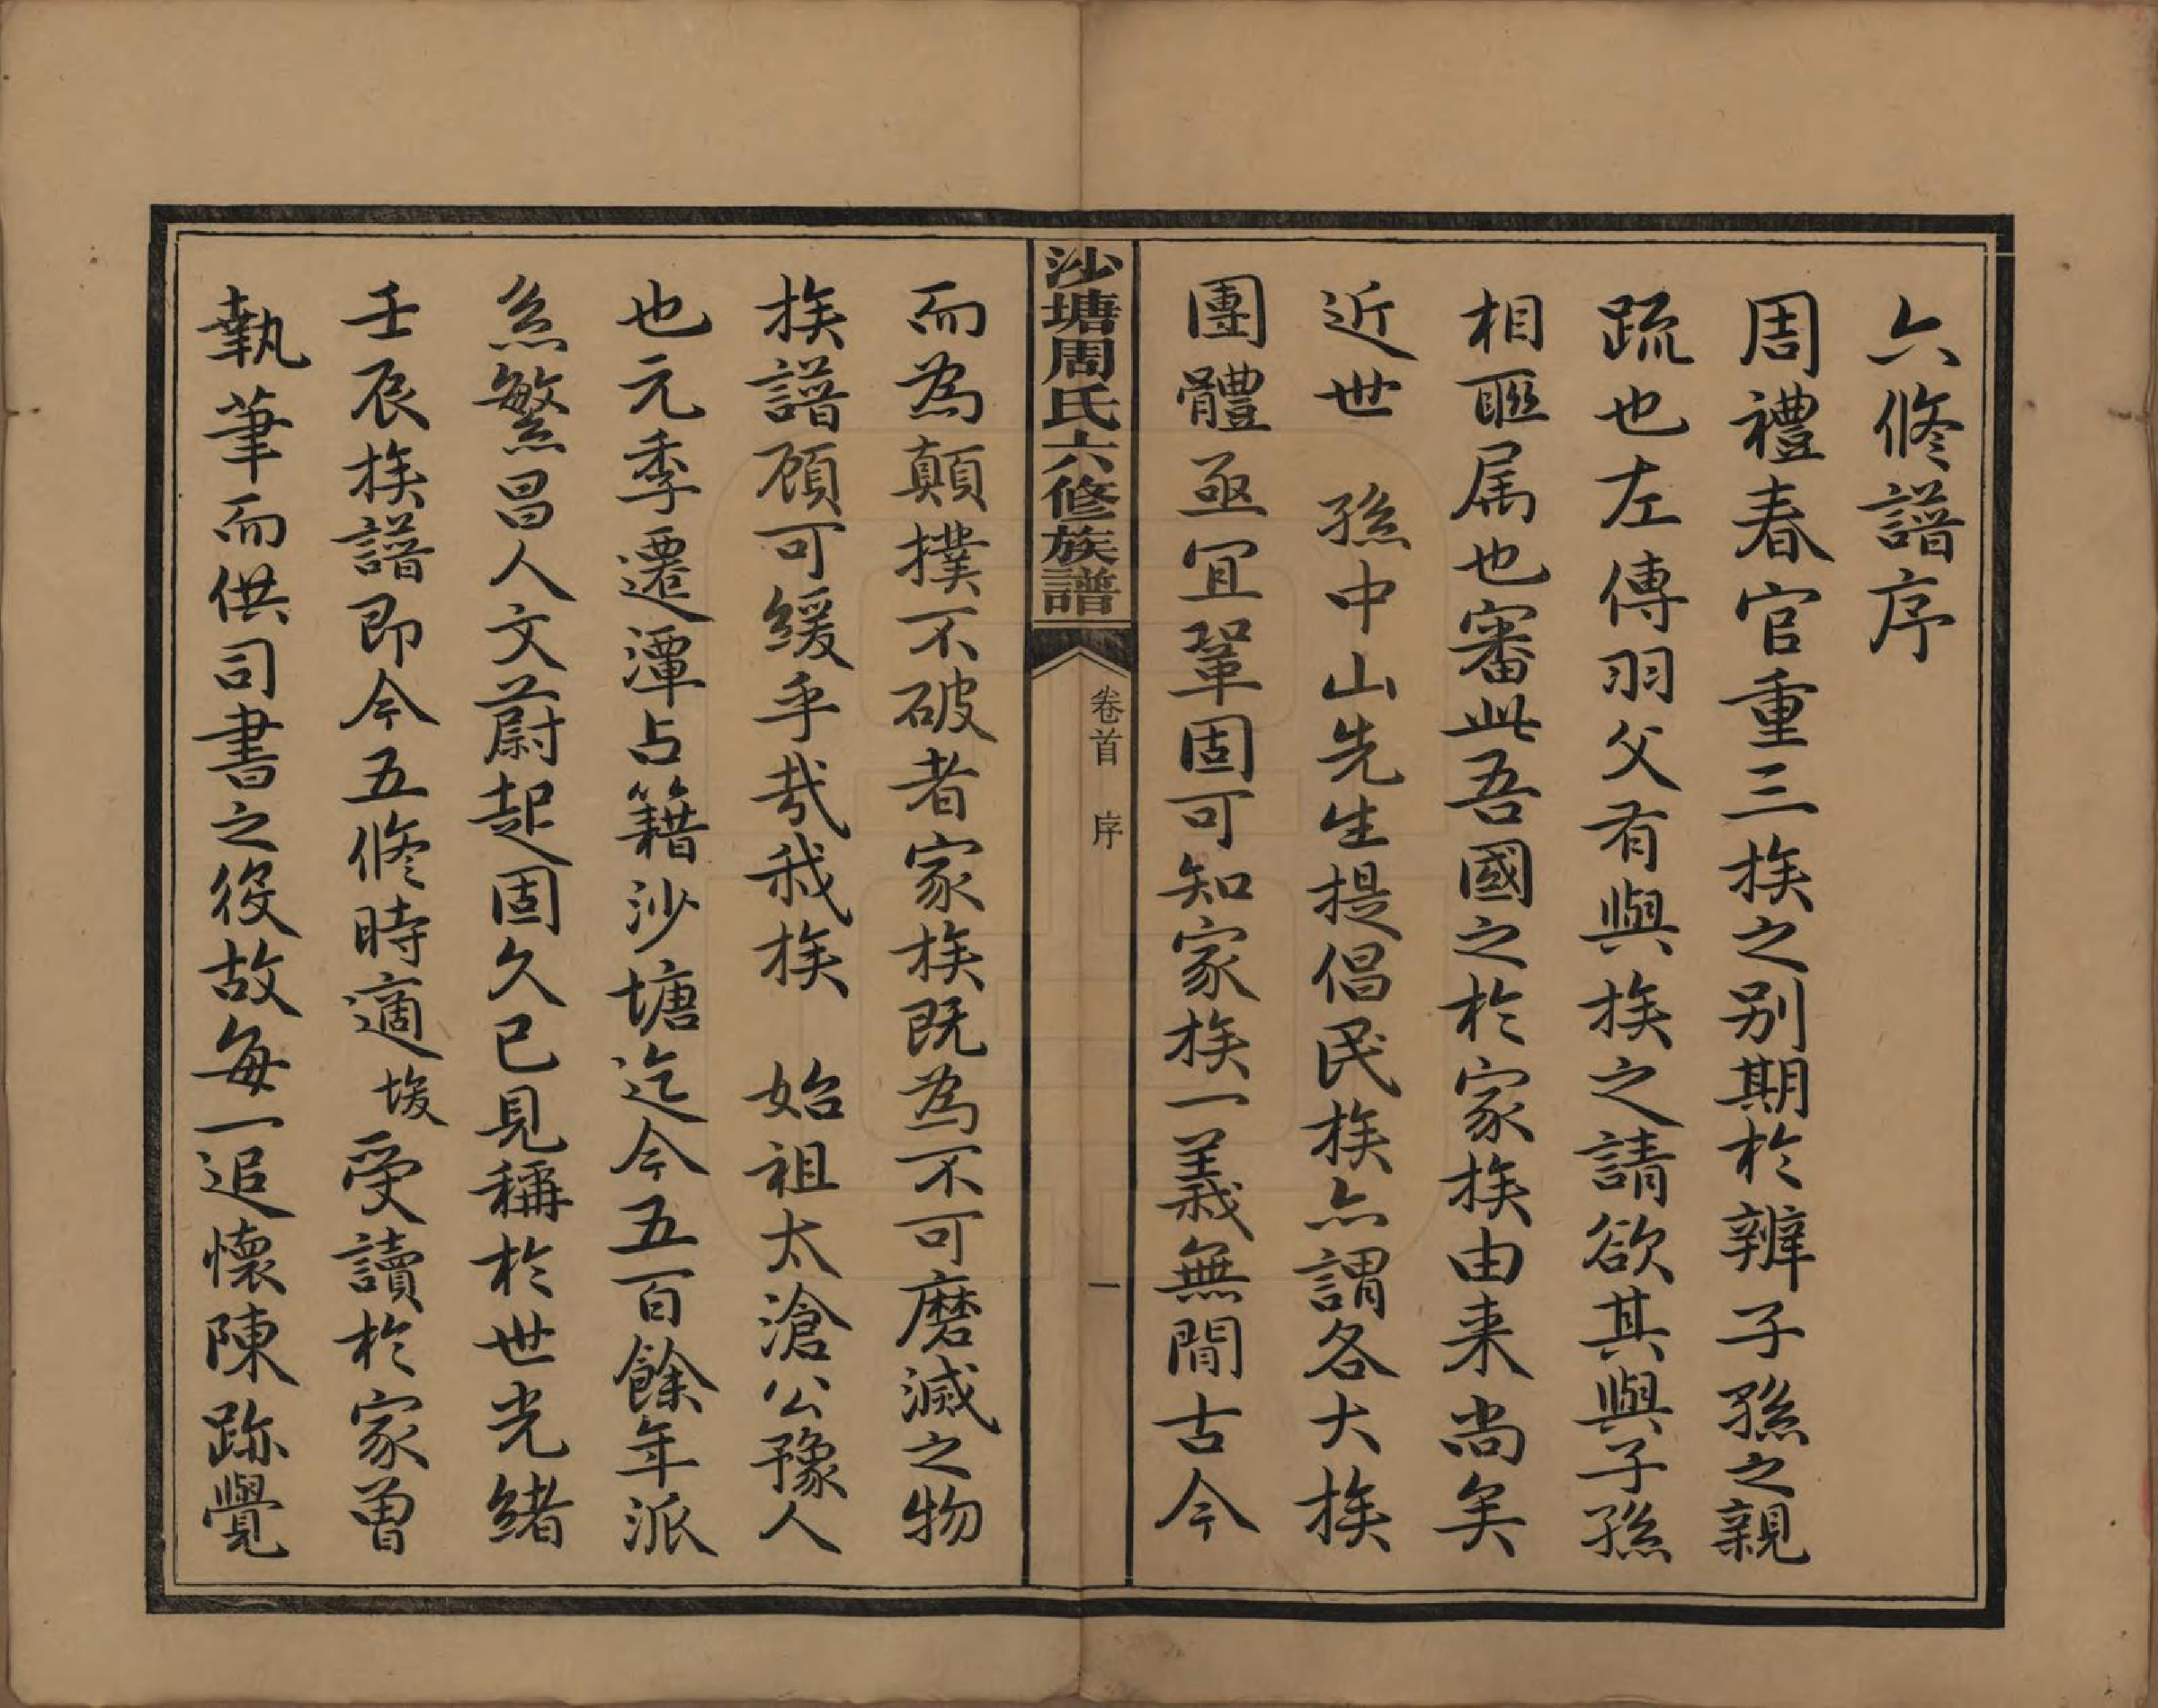 六修譜序
周禮春官重三族之別期於辨子孫之親
疏也左傳羽父有與族之請欲其與子孫
相聯属也審此吾國之於家族由来尚矣
近世 孫中山先生提倡民族亦謂各大族
團體亟宜鞏固可知家族一義無間古今
沙塘周氏六修族譜
卷首 序
一
而為顛撲不破者家族既為不可磨滅之物
族譜顧可緩乎哉我族 始祖太滄公豫人
也元季遷潭占籍沙塘迄今五百餘年派
系繁昌人文蔚起固久已見稱於世光緒
壬辰族譜即今五修時適 受讀於家曾
執筆而供司書之役故每一追懷陳跡覺